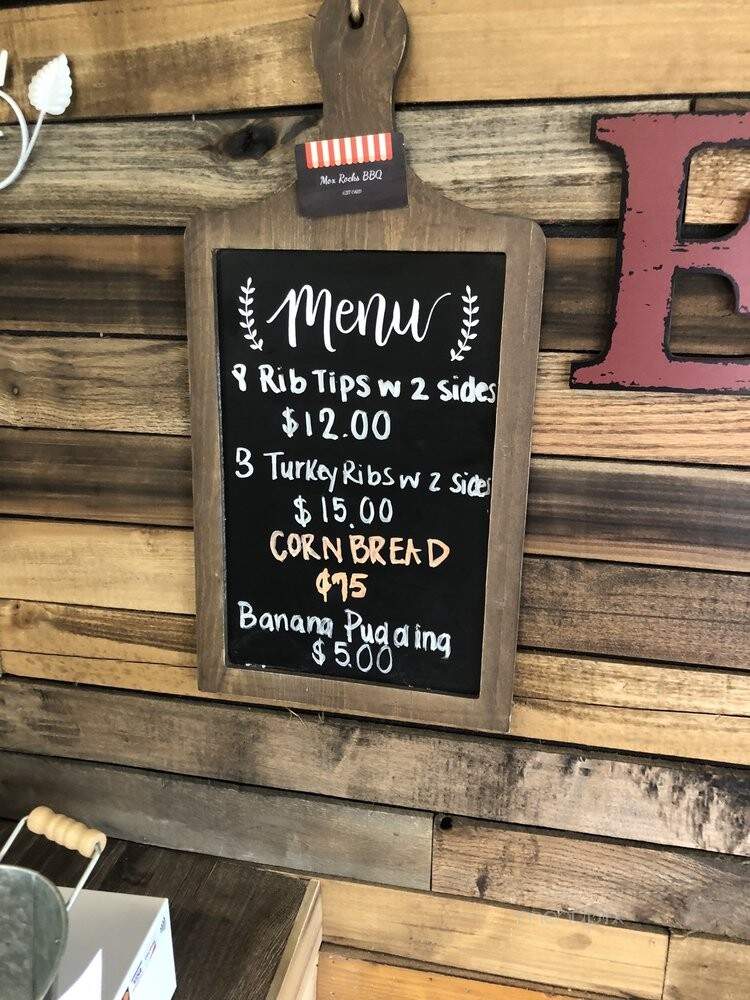 Mox Rocks BBQ
E
Menu
8 Rib Tips w 2 sides
$12.00
3 Turkey Ribs w 2 sides
$15.00
CORN BREAD
¢75
Banana Pudding
$5.00